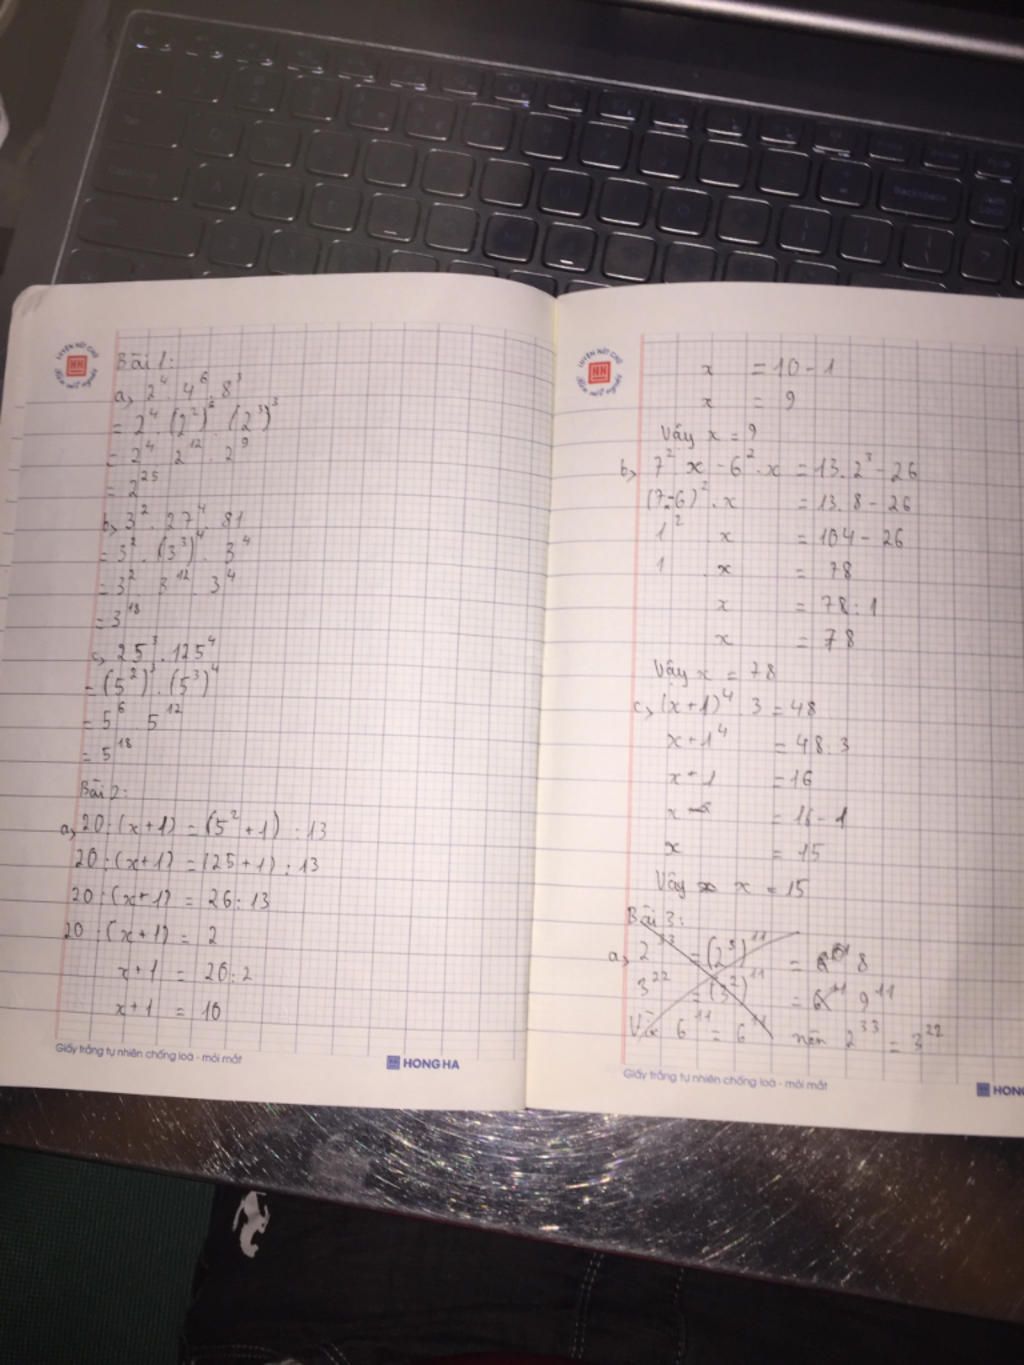 LUYỆN NÉT CHỮ
HH
Rèn nết người
Bài 1:
a, 2⁴. 4⁶. 8³
= 2⁴. (2²)⁶. (2³)³
= 2⁴. 2¹². 2⁹
= 2²⁵
b, 3². 27⁴. 81
= 3². (3³)⁴. 3⁴
= 3². 3¹². 3⁴
= 3¹⁸
c, 25³. 125⁴
= (5²)³. (5³)⁴
= 5⁶. 5¹²
= 5¹⁸
Bài 2:
a, 20:(x+1) = (5²+1) : 13
20:(x+1) = (25+1) : 13
20:(x+1) = 26:13
20:(x+1) = 2
x+1 = 20:2
x+1 = 10
Giấy trắng tự nhiên chống loá - mỏi mắt
HONG HA
LUYỆN NÉT CHỮ
HH
Rèn nết người
x = 10 - 1
x = 9
Vậy x = 9
b, 7². x - 6². x = 13. 2³ - 26
(7-6)². x = 13. 8 - 26
1². x = 104 - 26
1 . x = 78
x = 78 : 1
x = 78
Vậy x = 78
c, (x+1)⁴. 3 = 48
x+1⁴ = 48:3
x+1 = 16
x = 16-1
x = 15
Vậy x = 15
Bài 3:
a, 2³³ = (2³)¹¹ = 8
3²² = (3²)¹¹ = 9¹¹
Vì 6¹¹ = 6¹¹ nên 2³³ = 3²²
Giấy trắng tự nhiên chống loá - mỏi mắt
HONG